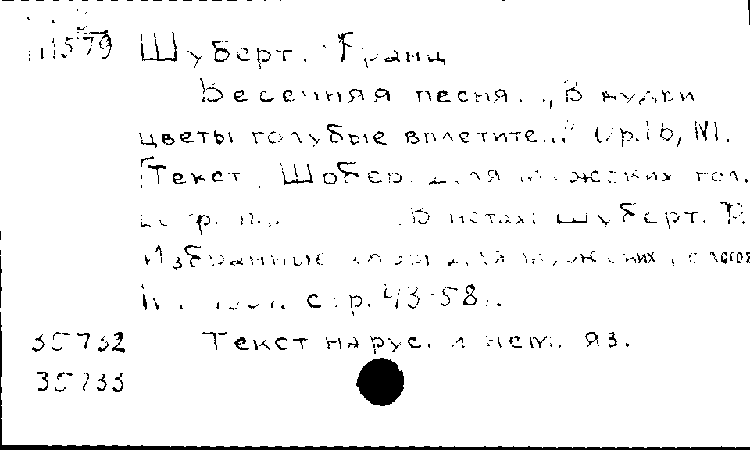 111579 Шуберт. Франц
Весенняя песня. „В кудри
цветы голубые вплетите..." Op.16, №1.
[Текст Шобер. Для мужских гол.
В нотах: Шуберт.
Избранные хоры для мужских голосов
стр. 43-58.
35732 Текст на рус. и нем. яз.
35733